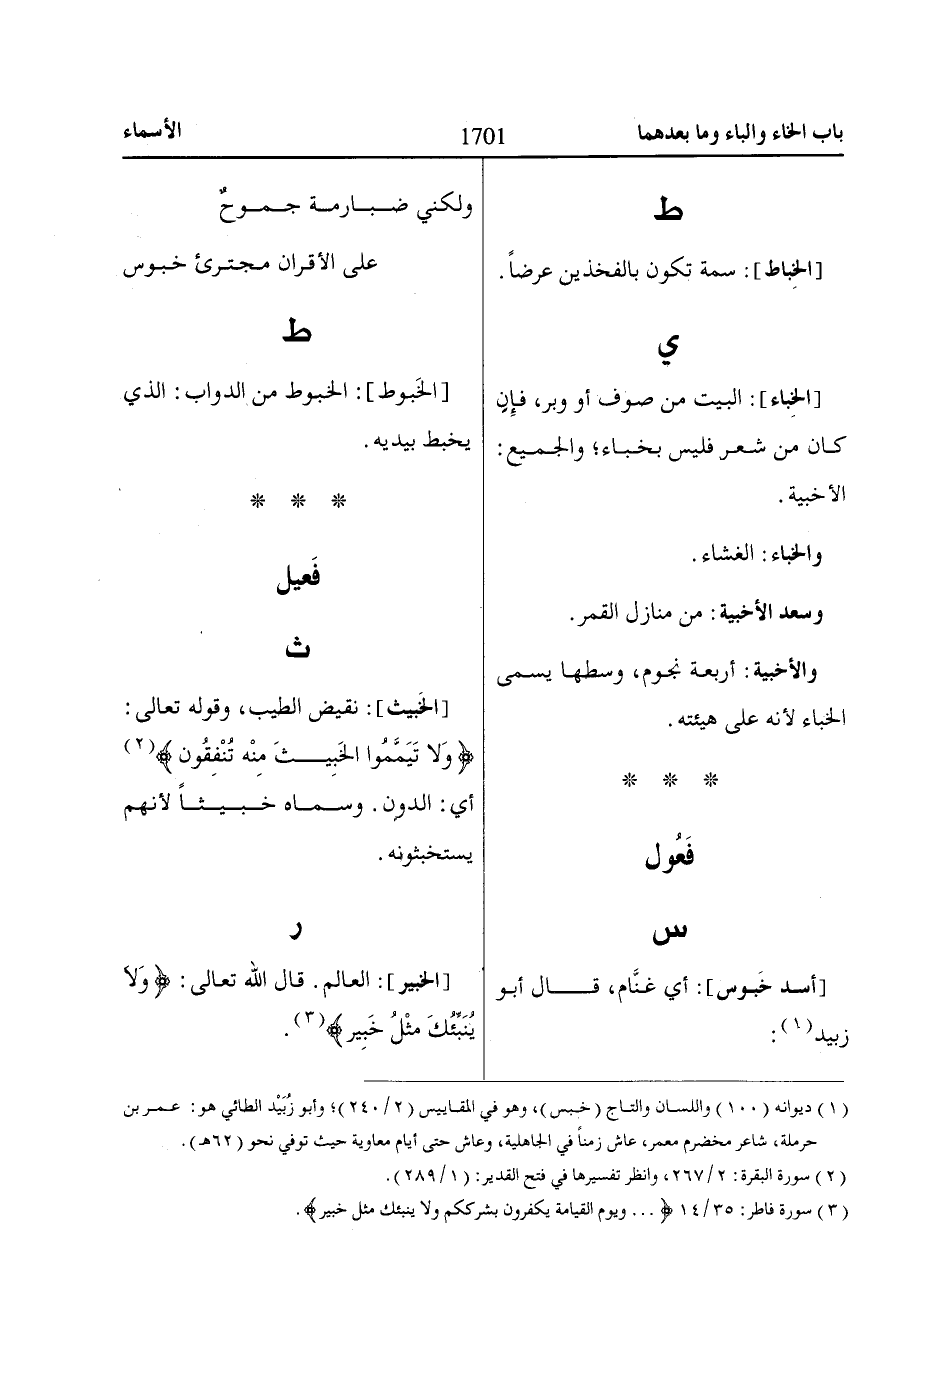 باب الخاء والباء وما بعدهما
1701
الأسماء
ط
[الخِباط]: سمة تكون بالفخذين عرضاً.
ي
[الخِباء]: البيت من صوف أو وبر، فإِن
كان من شعر فليس بخباء؛ والجميع:
الأخبية.
والخباء: الغشاء.
وسعد الأخبية: من منازل القمر.
والأخبية: أربعة نجوم، وسطها يسمى
الخباء لأنه على هيئته.
* * *
فَعُول
س
[أسد خَبوس]: أي غنَّام، قال أبو
زبيد(١):
ولكني ضبارمة جموحٌ
على الأقران مجترئ خبوس
ط
[الخَبوط]: الخبوط من الدواب: الذي
يخبط بيديه.
* * *
فَعيل
ث
[الخَبيث]: نقيض الطيب، وقوله تعالى:
﴿وَلا تَيَمَّمُوا الخَبِيثَ مِنْه تُنْفِقُون﴾(٢)
أي: الدون. وسماه خبيثاً لأنهم
يستخبثونه.
ر
[الخبير]: العالم. قال الله تعالى: ﴿وَلَا
يُنَبِّئُكَ مثْلُ خَبِير﴾(٣).
(١) ديوانه (١٠٠) واللسان والتاج (خبس)، وهو في المقاييس (٢/٢٤٠)؛ وأبو زُبَيْد الطائي هو: عمر بن
حرملة، شاعر مخضرم معمر، عاش زمناً في الجاهلية، وعاش حتى أيام معاوية حيث توفي نحو (٦٢هـ).
(٢) سورة البقرة: ٢/٢٦٧، وانظر تفسيرها في فتح القدير: (١/٢٨٩).
(٣) سورة فاطر: ٣٥/١٤ ﴿... ويوم القيامة يكفرون بشرككم ولا ينبئك مثل خبير﴾.